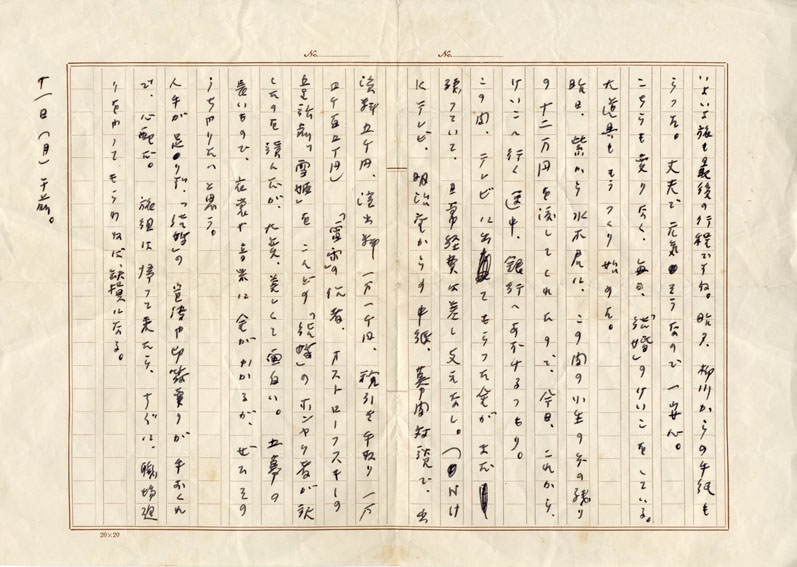 No.
No.
いよいよ旅も最後の行程ですね。昨夕、柳川からの手紙も
らった。丈夫で元気そうなので一安心。
こちらも変りなく、毎日、「結婚」のけいこをしている。
大道具ももうつくり始めた。
昨日、紫から水木君に、この間の小生の分の残り
の十二万円を渡してくれたので、今日、これから、
けいこへ行く途中、銀行へあずけるつもり。
この間、テレビに出てもらった金がまだ
残っていて、日常経費は差し支えなし。(
K テレビ、明治座からの手紙、幕間対談で、出
演料五ケ円、演出料一万一ケ円、税引き手取り一万
四ケ百五十円)「雷雨」の作者、オストローフスキーの
「雪姫」を こんどの「結婚」の ホンヤク者が訳
したのを読んだが、大変、美しくて面白い。五幕の
長いもので、衣裳や音楽に金がかかるが、ぜひその
うちやりたいと思う。
人手が足りず、「結婚」の宣伝や印符売りが手おくれ
で、心配だ。旅組は帰って来たら、すぐに、職場廻
りをやってもらわねば、欠損になる。
十一日(月)午前。
20×20